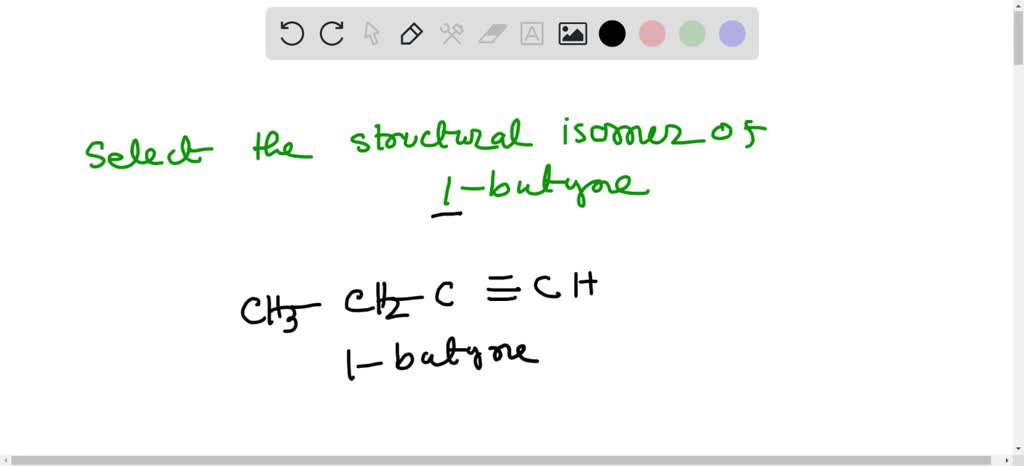 Select the structural isomer of
1-butyne
CH3-CH2-C≡CH
1-butyne